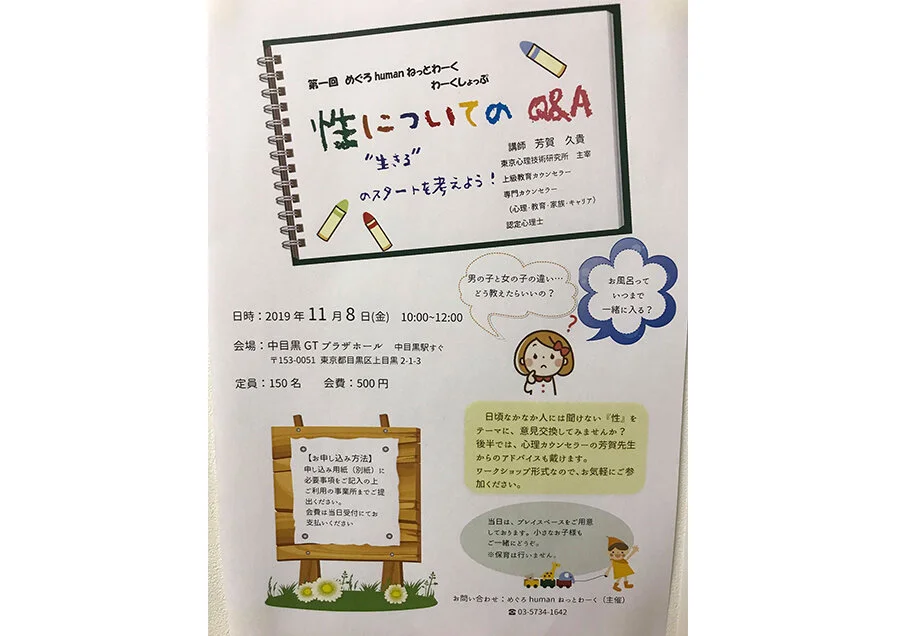 第一回 めぐろ human ねっとわーく
わーくしょっぷ
性についての Q&A
"生きる"
のスタートを考えよう！
講師　芳賀　久貴
東京心理技術研究所　主宰
上級教育カウンセラー
専門カウンセラー
（心理・教育・家族・キャリア）
認定心理士
男の子と女の子の違い…
どう教えたらいいの？
お風呂って
いつまで
一緒に入る？
?
日時：2019 年 11 月 8 日(金)　10:00~12:00
会場：中目黒 GT プラザホール　中目黒駅すぐ
〒153-0051 東京都目黒区上目黒 2-1-3
定員：150 名　　会費：500 円
日頃なかなか人には聞けない『性』を
テーマに、意見交換してみませんか？
後半では、心理カウンセラーの芳賀先生
からのアドバイスも戴けます。
ワークショップ形式なので、お気軽にご参
加ください。
【お申し込み方法】
申し込み用紙（別紙）に
必要事項をご記入の上
ご利用の事業所までご提
出ください。
会費は当日受付にてお
支払いください
当日は、プレイスペースをご用意
しております。小さなお子様も
ご一緒にどうぞ。
※保育は行いません。
お問い合わせ：めぐろ human ねっとわーく（主催）
☎ 03-5734-1642